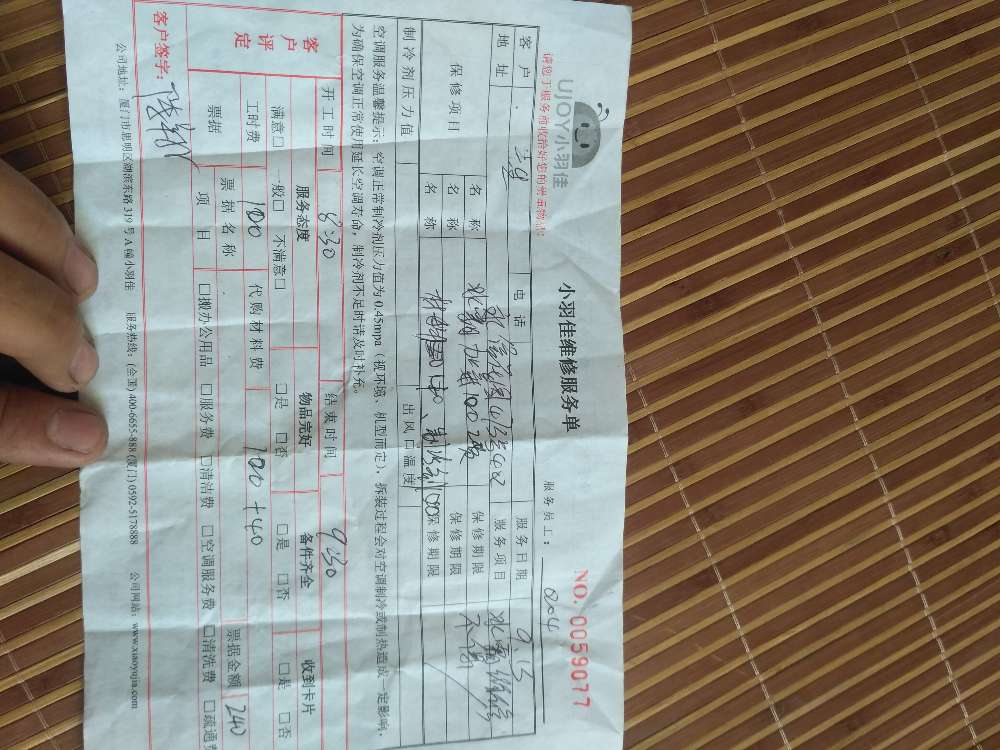 UJOY小羽佳
请您于服务前收拾好您的贵重物品!
小羽佳维修服务单
NO. 0059077
服务员工: 204
客户
电话
服务日期 9.13
地址
服务项目 冰箱维修
保修项目
名称 冰箱加氟100 保修期限 不保
名称 保修期限
名称 保修期限
制冷剂压力值
出风口温度
空调服务温馨提示: 空调正常制冷剂压力值为 0.45mpa（视环境、机型而定), 拆装过程会对空调制冷或制热造成一定影响,
为确保空调正常使用延长空调寿命, 制冷剂不足时请及时补充。
开工时间 8:30 结束时间 9:30
客户评定
服务态度 物品完好 备件齐全 收到卡片
满意□ 一般□ 不满意□ □是 □否 □是 □否 □是 □否
工时费 100 代购材料费 100+40 票据金额 240
票据
票据名称
项目 □搬办公用品 □服务费 □清洁费 □空调服务费 □清洗费 □疏通费
客户签字:
公司地址: 厦门市思明区湖滨东路 319 号 A 幢小羽佳 服务热线: (全国) 400-6655-888 (厦门) 0592-5178888 公司网站: www.xiaoyujia.com